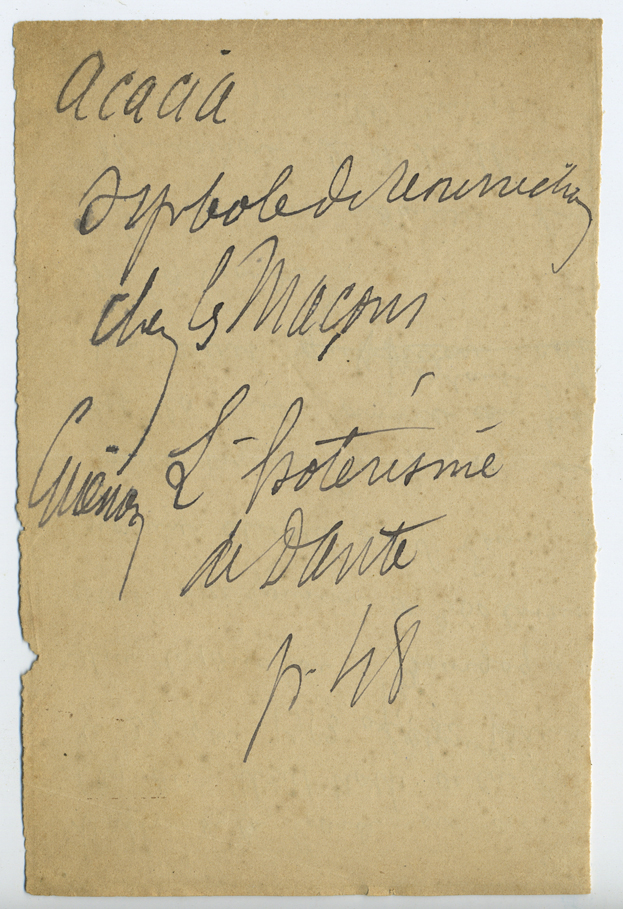 Acacia
Symbole de résurrection
chez les Maçons
Guénon L'Esotérisme
de Dante
p. 48